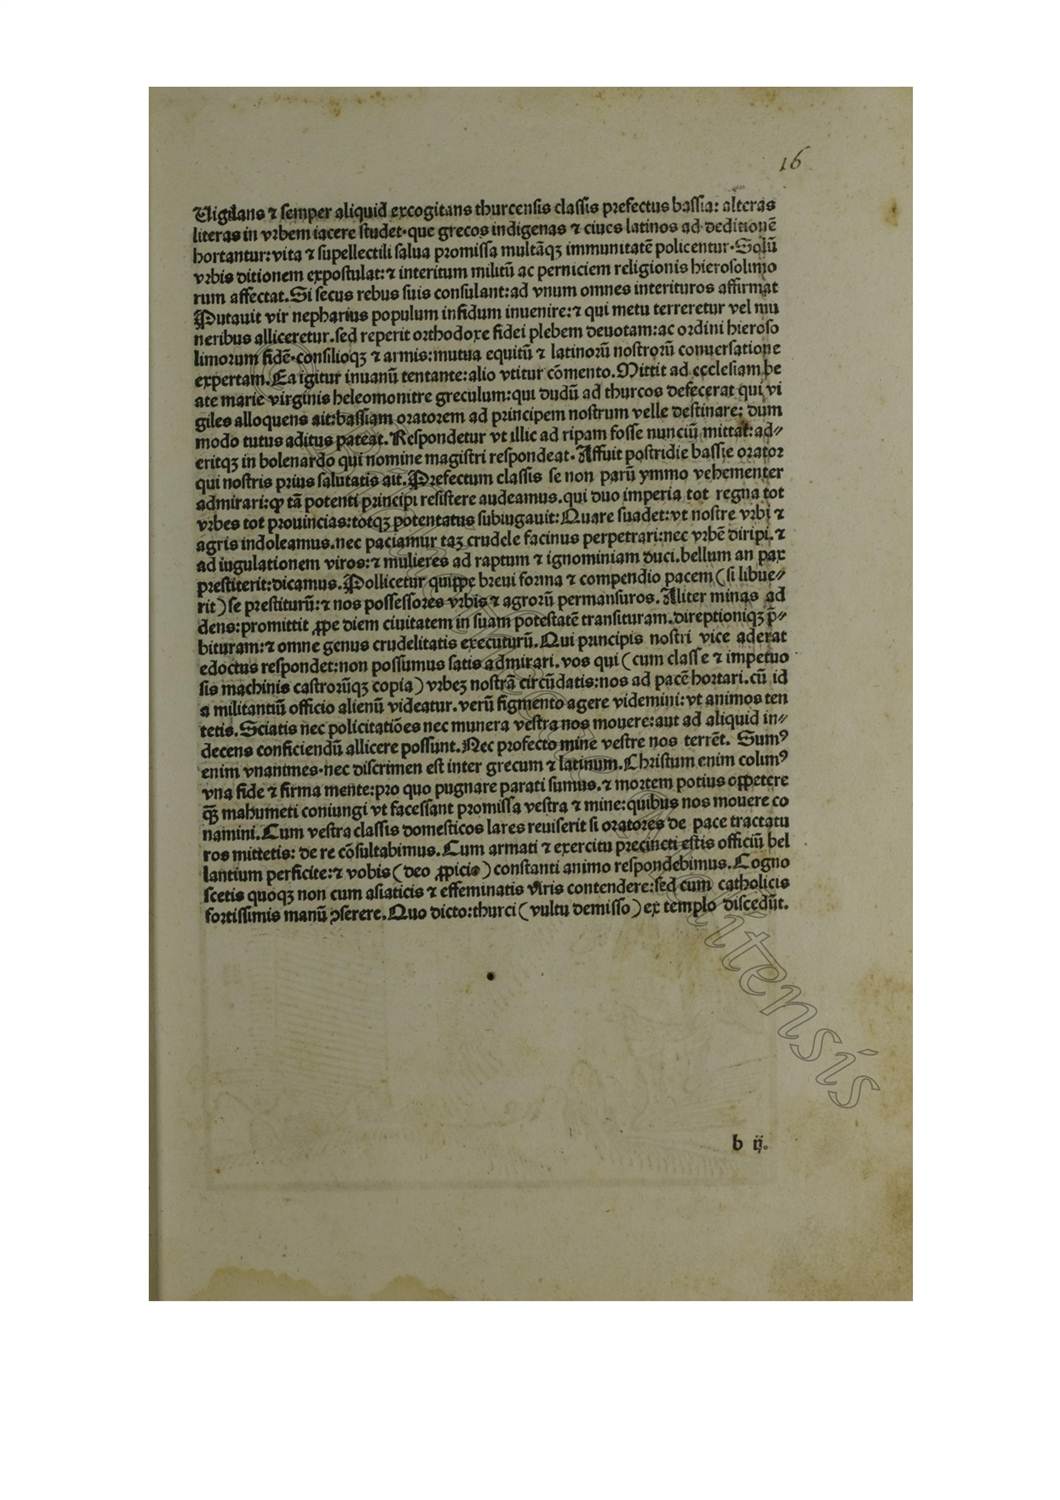 16
Uigilans ⁊ semper aliquid excogitans thurcensis classis prefectus bassia: alteras
literas in vrbem iacere studet·que grecos indigenas ⁊ ciues latinos ad deditionē
hortantur: vita ⁊ supellectili salua promissa multāqꝫ immunitatē policentur·Solū
vrbis ditionem expostulat:⁊ interitum militū ac perniciem religionis hierosolimo
rum affectat. Si secus rebus suis consulant: ad vnum omnes interituros affirmat
Putauit vir nepharius populum infidum inuenire:⁊ qui metu terreretur vel mu
neribus alliceretur. sed reperit orthodoxe fidei plebem deuotam: ac ordini hieroso
limorum fidē·consilioqꝫ ⁊ armis: mutua equitū ⁊ latinorū nostrorū conuersatione
expertam. Ea igitur inuanū tentante: alio vtitur cōmento. Mittit ad ecclesiam be
ate marie virginis heleomonitre greculum: qui dudū ad thurcos defecerat qui vi
giles alloquens ait: bassiam oratorem ad principem nostrum velle destinare: dum
modo tutus aditus pateat. Respondetur vt illic ad ripam fosse nunciū mittat: ad⸗
eritqꝫ in bolenardo qui nomine magistri respondeat·Affuit postridie bassie orator
qui nostris prius salutatis ait. Prefectum classis se non parū ymmo vehementer
admirari: ꝙ tā potenti principi resistere audeamus. qui duo imperia tot regna tot
vrbes tot prouincias: totqꝫ potentatus subiugauit: Quare suadet: vt nostre vrbi ⁊
agris indoleamus. nec paciamur taꝫ crudele facinus perpetrari: nec vrbē diripi. ⁊
ad iugulationem viros:⁊ mulieres ad raptum ⁊ ignominiam duci. bellum an pax
prestiterit: dicamus. Pollicetur quippe breui forma ⁊ compendio pacem (si libue⸗
rit) se prestiturū:⁊ nos possessores vrbis ⁊ agrorū permansuros. Aliter minas ad
dens: promittit ꝓpe diem ciuitatem in suam potestatē transituram. direptioniqꝫ p̄⸗
bituram:⁊ omne genus crudelitatis executurū. Qui principis nostri vice aderat
edoctus respondet: non possumus satis admirari. vos qui (cum classe ⁊ impetuo
sis machinis castrorūqꝫ copia) vrbeꝫ nostrā circūdatis: nos ad pacē hortari. cū id
a militantiū officio alienū videatur. verū figmento agere videmini: vt animos ten
tetis. Sciatis nec policitatiōes nec munera vestra nos mouere: aut ad aliquid in⸗
decens conficiendū allicere possunt. Nec profecto mine vestre nos terrēt. Sumꝰ
enim vnanimes·nec discrimen est inter grecum ⁊ latinum. Christum enim colimꝰ
vna fide ⁊ firma mente: pro quo pugnare parati sumus. ⁊ mortem potius oppetere
ꝙ̄ mahumeti coniungi vt facessant promissa vestra ⁊ mine: quibus nos mouere co
namini. Cum vestra classis domesticos lares reuiserit si oratores de pace tractatu
ros mittetis: de re cōsultabimus. Cum armati ⁊ exercitu precincti estis officiū bel
lantium perficite:⁊ vobis (deo ꝓpicio) constanti animo respondebimus. Cogno
scetis quoqꝫ non cum asiaticis ⁊ effeminatis viris contendere: sed cum catholicis
fortissimis manū ꝯserere. Quo dicto: thurci (vultu demisso) ex templo discedūt.
b ij.